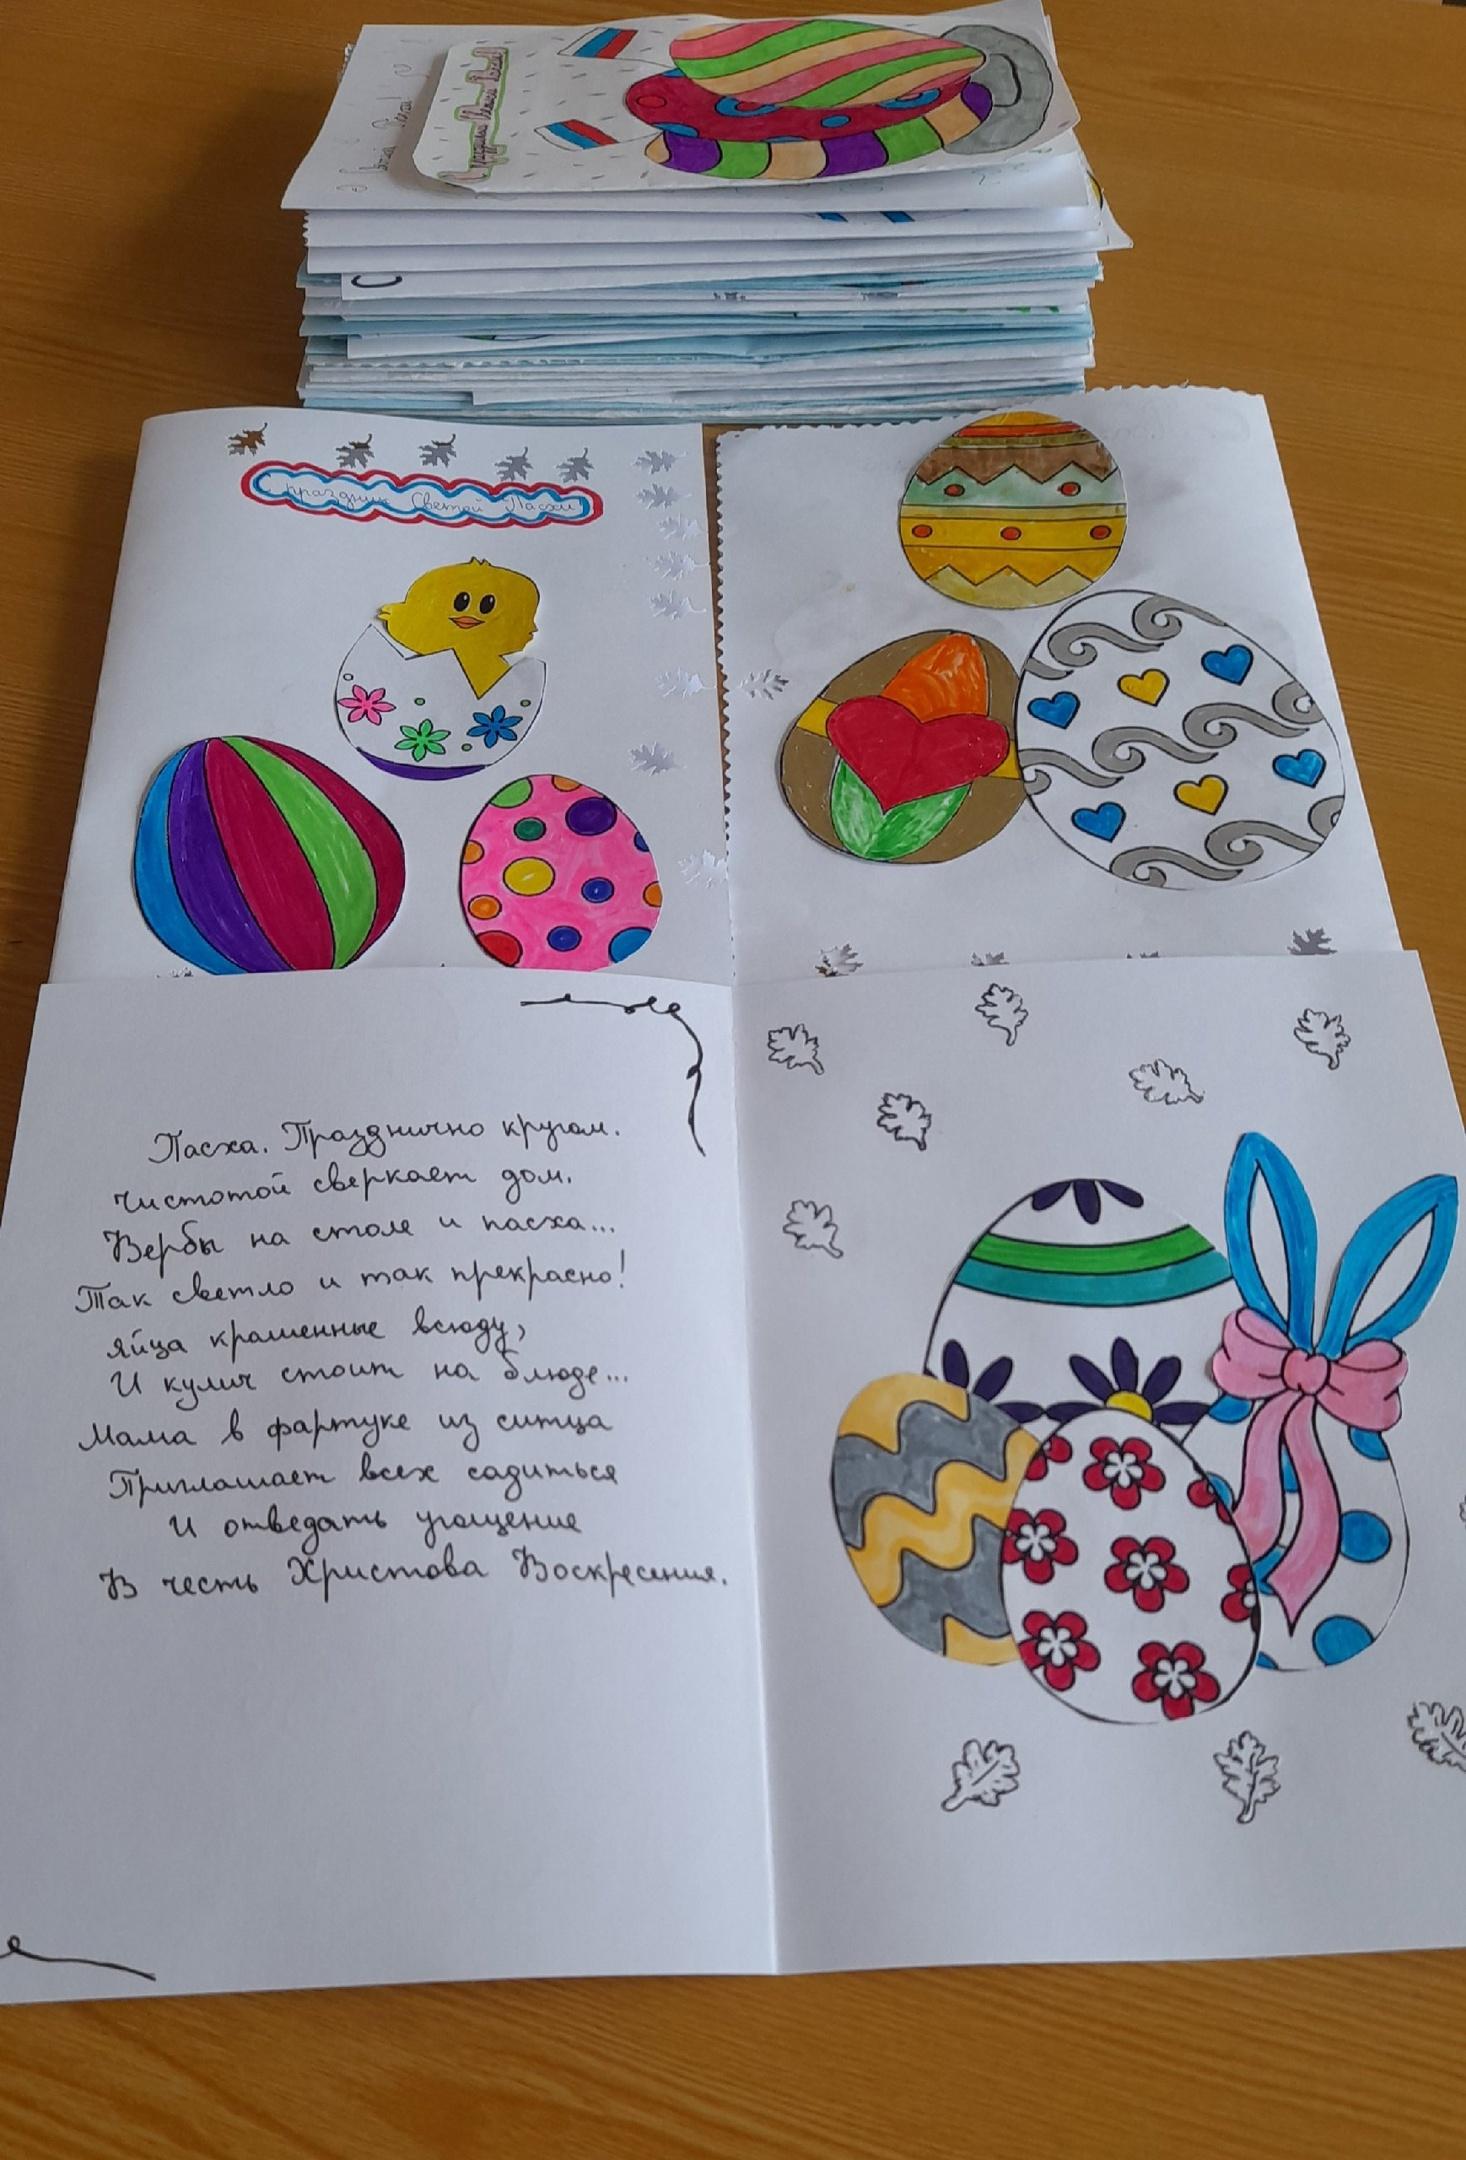 С праздником Светлой Пасхи
Пасха. Празднично кругом.
Чистотой сверкает дом.
Вербы на столе и пасха...
Так светло и так прекрасно!
Яйца крашенные всюду,
И кулич стоит на блюде...
Мама в фартуке из ситца
Приглашает всех садиться
И отведать угощение
В честь Христова Воскресения.